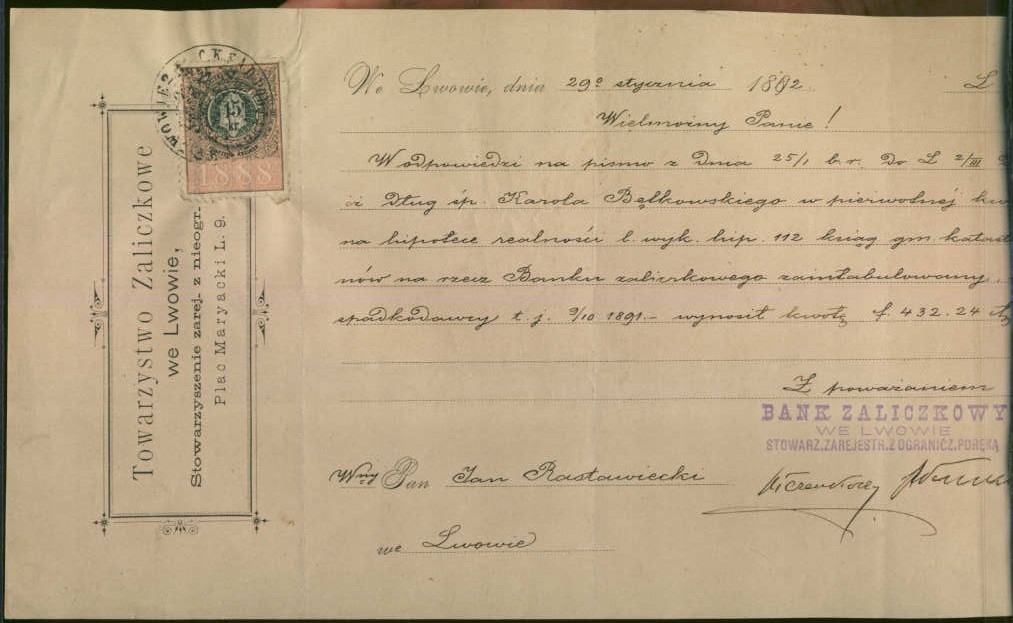 Towarzystwo Zaliczkowe
we Lwowie,
Stowarzyszenie zarej. z nieogr.
Plac Maryacki L. 9.
15
kr
1888
We Lwowie, dnia 29º stycznia 1892 L
Wielmożny Panie!
W odpowiedzi na pismo z dnia 25/1 b. r. do L 2/III
iż dług śp. Karola Bętkowskiego w pierwotnej kw
na hipotece realności l. wyk. hip. 112 ksiąg gm. katast
nów na rzecz Banku zaliczkowego zaintabulowany,
spadkodawcy t. j. 9/10 1891.- wynosił kwotę f. 432.24
Z poważaniem
BANK ZALICZKOWY
WE LWOWIE
STOWARZ. ZAREJESTR. Z OGRANICZ. PORĘKĄ
Wny Pan Jan Rastawiecki
we Lwowie